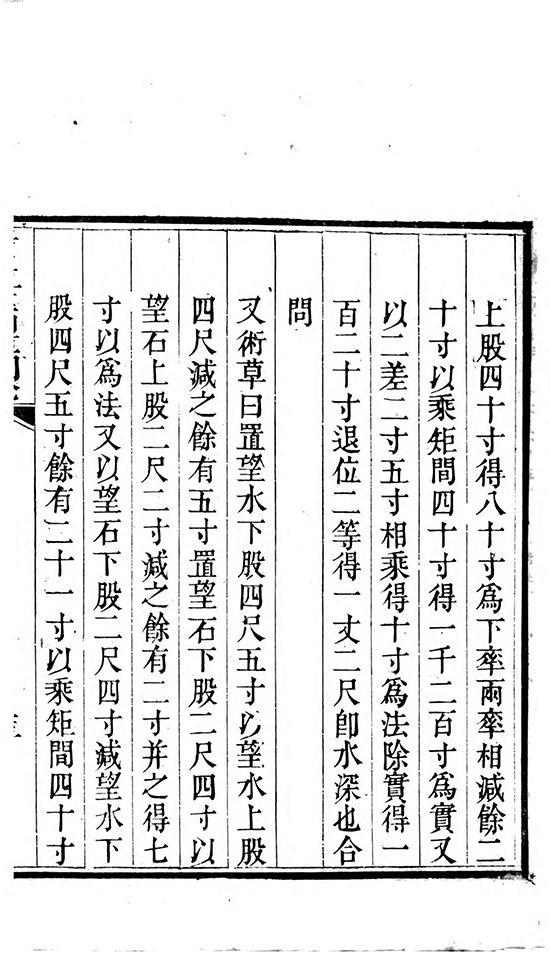 上股四十寸得八十寸爲下率兩率相減餘二
十寸以乘矩間四十寸得一千二百寸爲實又
以二差二寸五寸相乘得十寸爲法除實得一
百二十寸退位二等得一丈二尺卽水深也合
問
又術草曰置望水下股四尺五寸以望水上股
四尺減之餘有五寸置望石下股二尺四寸以
望石上股二尺二寸減之餘有二寸并之得七
寸以爲法又以望石下股二尺四寸減望水下
股四尺五寸餘有二十一寸以乘矩間四十寸